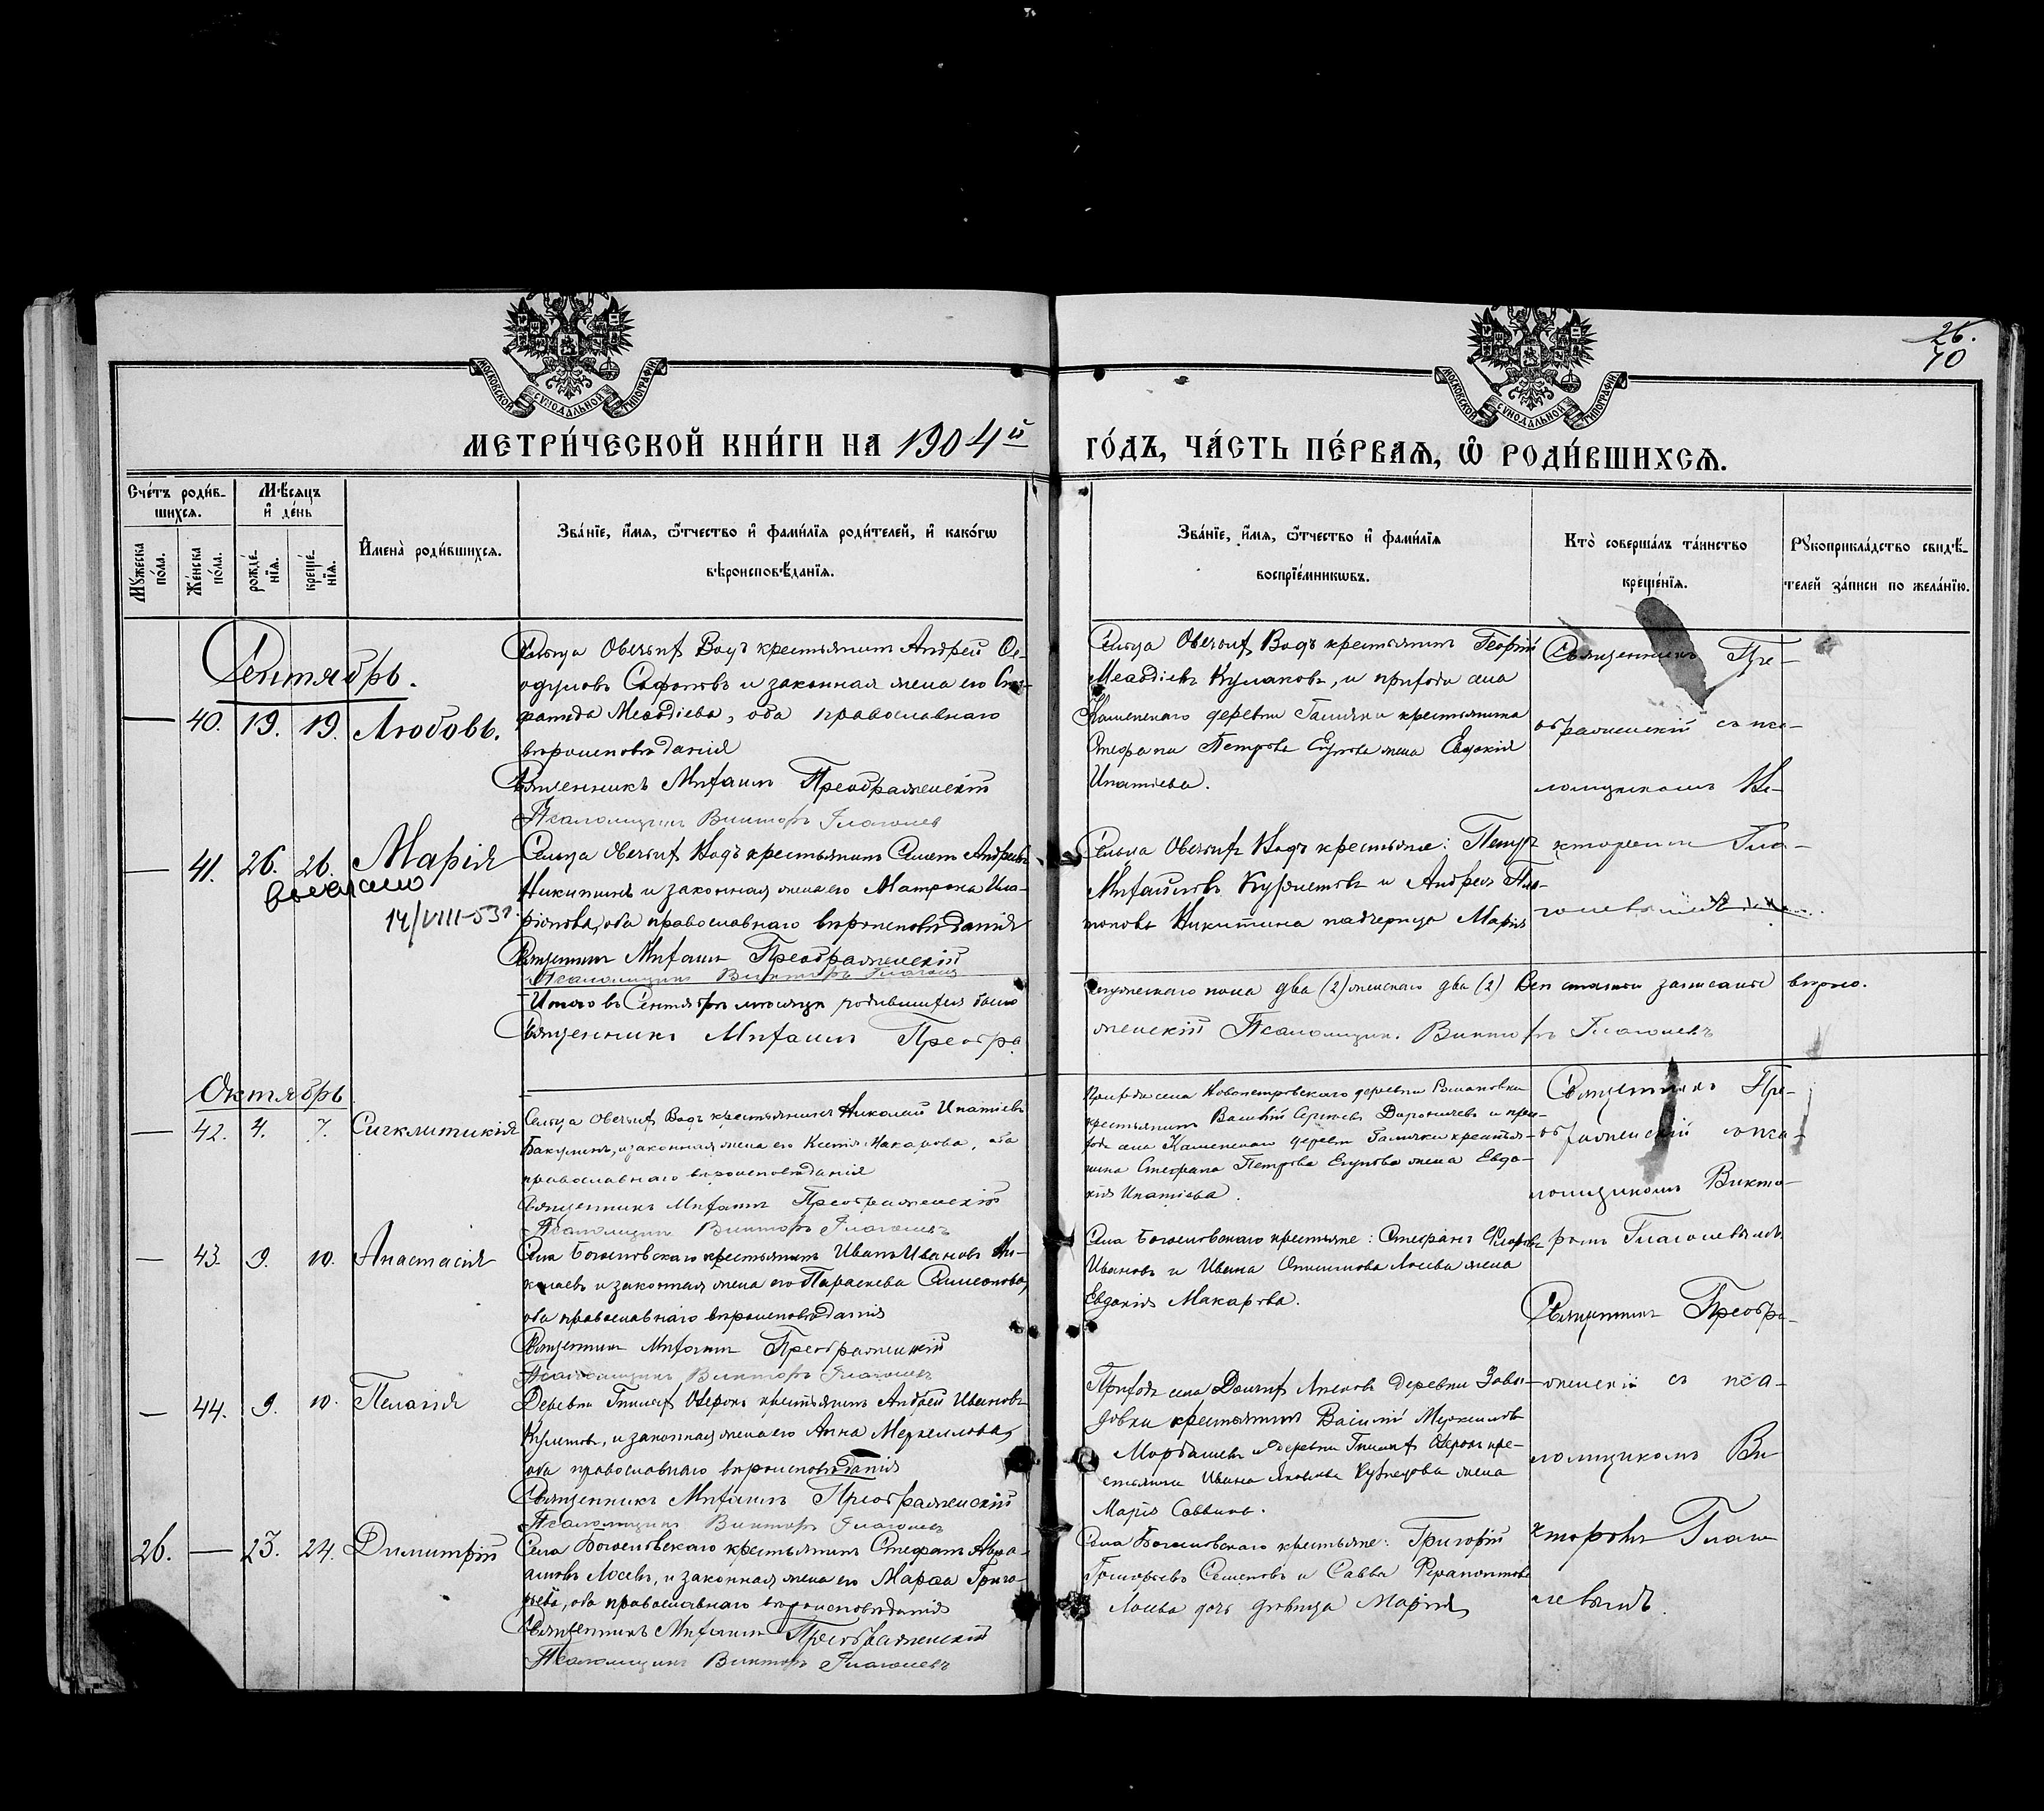 26.
70
МОСКОВСКОЙ СѴНОДАЛЬНОЙ ТИПОГРАФІИ
МОСКОВСКОЙ СѴНОДАЛЬНОЙ ТИПОГРАФІИ
МЕТРИ́ЧЕСКОЙ КНИ́ГИ НА 1904й
ГО́ДЪ, ЧА́СТЬ ПЕ́РВАѦ, Ѡ҆ РОДИ́ВШИХСѦ.
Сче́тъ роди́в-
шихсѧ.
Мꙋжеска по́ла.
Же́нска по́ла.
Мѣ́сѧцъ
и҆ де́нь
рожде́-
нїѧ.
креще́-
нїѧ.
И҆мена̀ роди́вшихсѧ.
Зва́нїе, и҆́мѧ, ѻ҆́тчество и҆ фами́лїѧ роди́телей, и҆ како́гѡ
вѣроисповѣ́данїѧ.
Зва́нїе, и҆́мѧ, ѻ҆́тчество и҆ фами́лїѧ
воспрїе́мникѡвъ.
Кто̀ соверша́лъ та́инство
креще́нїѧ.
Рꙋкоприкла́дство свидѣ́-
телей за́писи по жела́нїю.
Сентябрь.
— 40. 19. 19. Любовь.
Сельца Овечьих Водъ крестьянинъ Андрей Ѳе-
одуловъ Сафоновъ и законная жена его
Меѳодіева, оба православнаго
вѣроисповѣданія
Священникъ Михаилъ Преображенскій
Псаломщикъ Викторъ Глаголевъ
Сельца Овечьих Водъ крестьянинъ Георгій
Меѳодіевъ Кулаковъ, и прихода села
Каменскаго деревни Галички крестьянина
Стефана Петрова Егунова жена Евдокія
Ипатіева.
Священникъ Пре-
ображенскій съ пса-
ломщикомъ Ви-
кторомъ Гла-
голевымъ
— 41. 26. 26. Марія
выслано
14/VIII-53г.
Сельца Овечьих Водъ крестьянинъ Симеонъ Андреевъ
Никитинъ и законная жена его Матрона Ила-
ріонова, оба православнаго вѣроисповѣданія
Священникъ Михаилъ Преображенскій
Псаломщикъ Викторъ Глаголевъ
Сельца Овечьих Водъ крестьяне: Петръ
Михайловъ Кузнецовъ и Андрея Пла-
тонова Никитина падчерица Марія
Итого въ Сентябрѣ мѣсяцѣ родившихся было
мужескаго пола два (2) женскаго два (2) Всѣ статьи записаны вѣрно.
Священникъ Михаилъ Преобра-
женскій Псаломщикъ Викторъ Глаголевъ
Октябрь
— 42. 4. 7. Сигклитикія
Сельца Овечьих Водъ крестьянинъ Николай Ипатіевъ
Бакулинъ, и законная жена его Ксенія Макарова, оба
православнаго вѣроисповѣданія
Священникъ Михаилъ Преображенскій
Псаломщикъ Викторъ Глаголевъ
Прихода села Новопетровскаго деревни Романовки
крестьянинъ Василій Сергѣевъ Дороничевъ и при-
хода села Каменскаго деревни Галички крестья-
нина Стефана Петрова Егунова жена Евдо-
кія Ипатіева.
Священникъ Пре-
ображенскій съ пса-
ломщикомъ Викто-
ромъ Глаголевымъ
— 43. 9. 10. Анастасія
Села Богословскаго крестьянинъ Иванъ Ивановъ Ни-
колаевъ и законная жена его Параскева Симеонова,
оба православнаго вѣроисповѣданія
Священникъ Михаилъ Преображенскій
Псаломщикъ Викторъ Глаголевъ
Села Богословскаго крестьяне: Стефанъ Флоровъ
Ивановъ и Ивана Лосева жена
Евдокія Макарова.
Священникъ Преобра-
женскій съ пса-
ломщикомъ Ви-
кторомъ Глаго-
левымъ.
— 44. 9. 10. Пелагія
Деревни Гнилыхъ Озерокъ крестьянинъ Андрей Ивановъ
и законная жена его Анна Меркеллова,
оба православнаго вѣроисповѣданія
Священникъ Михаилъ Преображенскій
Псаломщикъ Викторъ Глаголевъ
Прихода села Долгих Лясковъ деревни
крестьянинъ Василій Меркелловъ
Мордашевъ и деревни Гнилыхъ Озерокъ кре-
стьянина Ивана Яковлева Кузнецова жена
Марія Саввина.
26. — 23. 24. Димитрій
Села Богословскаго крестьянинъ Стефанъ Авра-
амовъ Лосевъ, и законная жена его Марѳа Григо-
рьева, оба православнаго вѣроисповѣданія
Священникъ Михаилъ Преображенскій
Псаломщикъ Викторъ Глаголевъ
Села Богословскаго крестьяне: Григорій
Григорьевъ Семеновъ и Саввы Ферапонтова
Лосева дочь дѣвица Марія